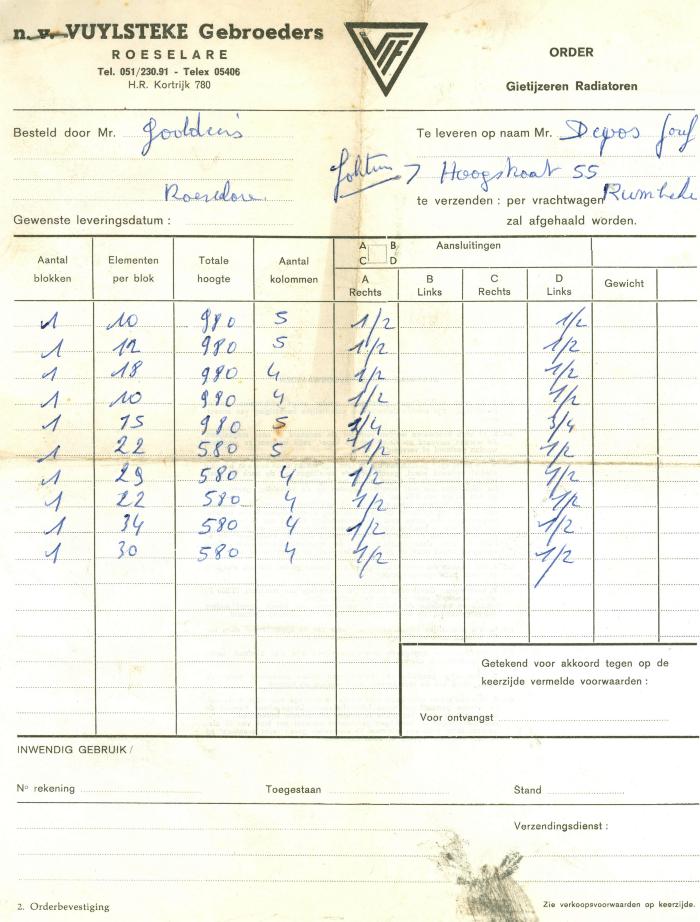 n. v. VUYLSTEKE Gebroeders
ROESELARE
Tel. 051/230.91 - Telex 05406
H.R. Kortrijk 780
VIF
ORDER
Gietijzeren Radiatoren
Besteld door Mr.
Te leveren op naam Mr. Depos Jozef
Hoogstraat 55
Roeselare
te verzenden : per vrachtwagen Rumbeke
Gewenste leveringsdatum :
zal afgehaald worden.
Aantal blokken Elementen per blok Totale hoogte Aantal kolommen A B C D Aansluitingen
A Rechts B Links C Rechts D Links Gewicht
1 10 980 5 1/2 1/2
1 12 980 5 1/2 1/2
1 18 980 4 1/2 1/2
1 10 980 4 1/2 1/2
1 15 980 5 3/4 3/4
1 22 580 5 1/2 1/2
1 29 580 4 1/2 1/2
1 22 580 4 1/2 1/2
1 34 580 4 1/2 1/2
1 30 580 4 1/2 1/2
Getekend voor akkoord tegen op de
keerzijde vermelde voorwaarden :
Voor ontvangst
INWENDIG GEBRUIK /
No rekening Toegestaan Stand
Verzendingsdienst :
2. Orderbevestiging
Zie verkoopsvoorwaarden op keerzijde.